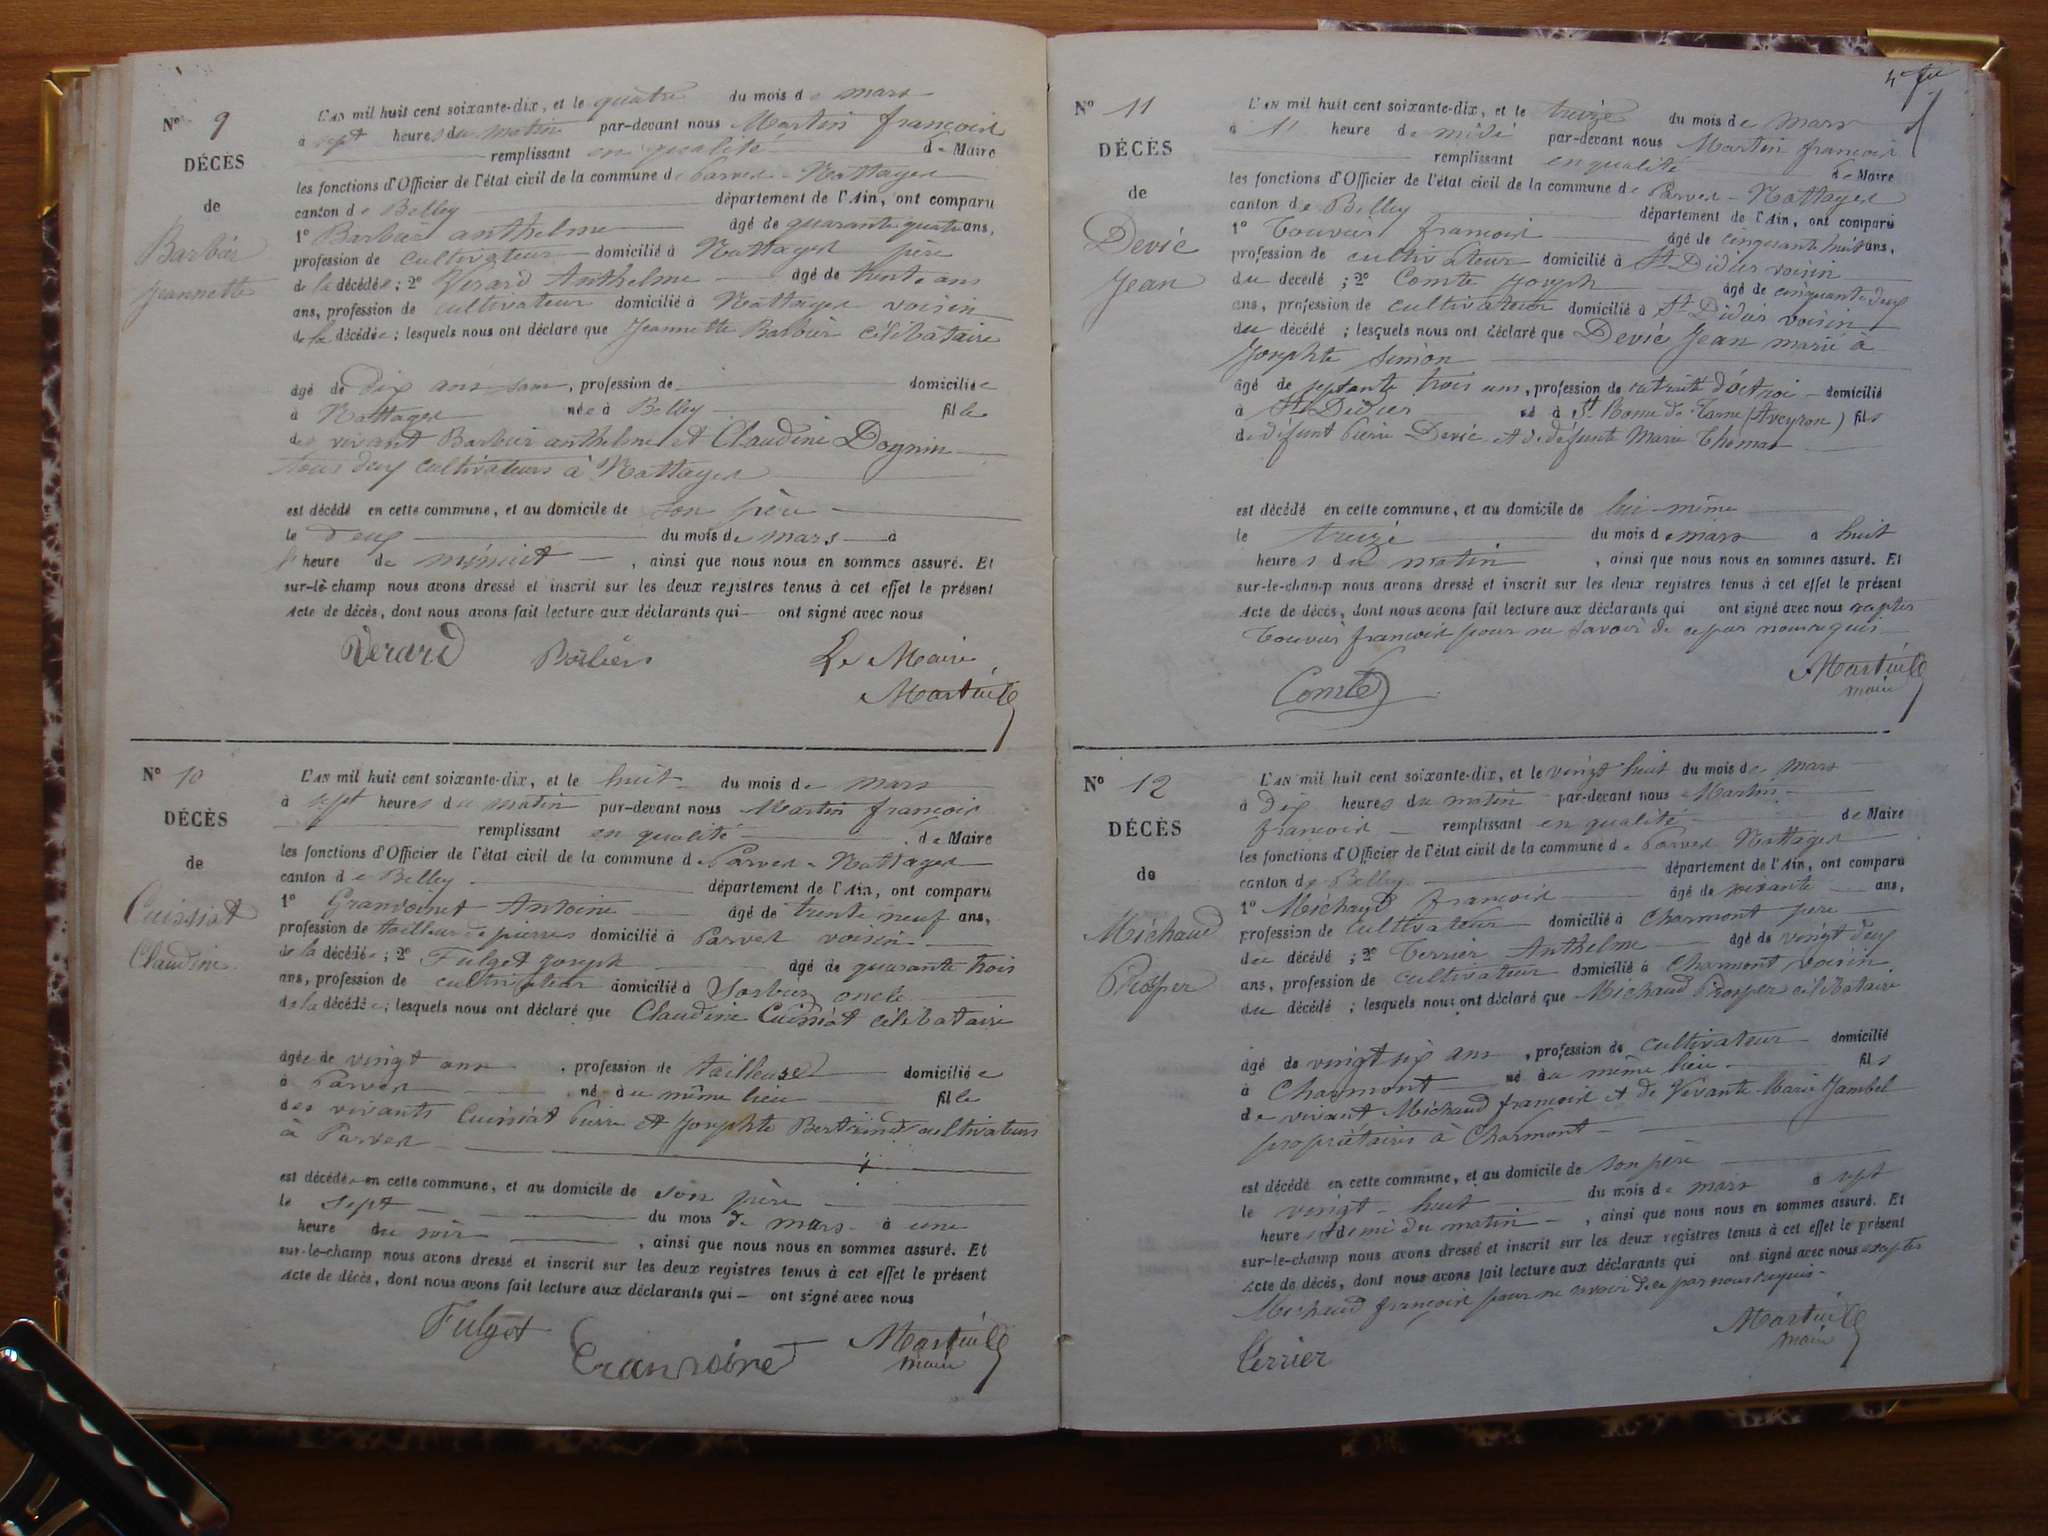 N° 9
DÉCÈS
de
Barbier
Jeannette
L'AN mil huit cent soixante-dix, et le quatre du mois de mars
à sept heures du matin par-devant nous Martin françois
remplissant en qualité de Maire
les fonctions d'Officier de l'état civil de la commune de Parves-Nattages
canton de Belley département de l'Ain, ont comparu
1° Barbier anthelme âgé de quarante quatre ans,
profession de cultivateur domicilié à Nattages père
de la décédée ; 2° Verard Anthelme âgé de trente ans
ans, profession de cultivateur domicilié à Nattages voisin
de la décédée ; lesquels nous ont déclaré que Jeannette Barbier célibataire
âgé de Dix ans , profession de domiciliée
à Nattages née à Belley fille
des vivant Barbier anthelme et Claudine Dognin
tous deux cultivateurs à Nattages
est décédé en cette commune, et au domicile de son père
le deux du mois de mars à
heure de minuit , ainsi que nous nous en sommes assuré. Et
sur-le-champ nous avons dressé et inscrit sur les deux registres tenus à cet effet le présent
Acte de décès, dont nous avons fait lecture aux déclarants qui ont signé avec nous
Verard Barbier Le Maire
N° 10
DÉCÈS
de
Cuissiat
Claudine
L'AN mil huit cent soixante-dix, et le huit du mois de mars
à sept heures du matin par-devant nous Martin françois
remplissant en qualité de Maire
les fonctions d'Officier de l'état civil de la commune de Parves-Nattages
canton de Belley département de l'Ain, ont comparu
1° Granvoinet Antoine âgé de trente neuf ans,
profession de tailleur de pierres domicilié à Parves voisin
de la décédée ; 2° Fulget joseph âgé de quarante trois
ans, profession de cultivateur domicilié à Sorbus oncle
de la décédée ; lesquels nous ont déclaré que Claudine Cuissiat célibataire
âgée de vingt ans , profession de tailleuse domiciliée
à Parves né du même lieu fille
des vivants Cuissiat Pierre et Josephte Bertrand cultivateurs
à Parves
est décédée en cette commune, et au domicile de son père
le sept du mois de mars à une
heure du soir , ainsi que nous nous en sommes assuré. Et
sur-le-champ nous avons dressé et inscrit sur les deux registres tenus à cet effet le présent
Acte de décès, dont nous avons fait lecture aux déclarants qui ont signé avec nous
Fulget
maire
N° 11
DÉCÈS
de
Devic
Jean
L'AN mil huit cent soixante-dix, et le treize du mois de mars
à heure de midi par-devant nous Martin françois
remplissant en qualité de Maire
les fonctions d'Officier de l'état civil de la commune de Parves-Nattages
canton de Belley département de l'Ain, ont comparu
1° Touvier françois âgé de cinquante huit ans,
profession de cultivateur domicilié à St Didier voisin
du decedé ; 2° Comte Joseph âgé de cinquante deux
ans, profession de cultivateur domicilié à St Didier voisin
du décédé ; lesquels nous ont déclaré que Devic Jean marié à
Josephte Simon
âgé de septante trois ans, profession de retraité d'octroi domicilié
à St Didier né à St Rome de Tarn (Aveyron) fils
de défunt Pierre Devic et de défunte Marie Thomas
est décédé en cette commune, et au domicile de lui-même
le treize du mois de mars à huit
heures du matin , ainsi que nous nous en sommes assuré. Et
sur-le-champ nous avons dressé et inscrit sur les deux registres tenus à cet effet le présent
Acte de décès, dont nous avons fait lecture aux déclarants qui ont signé avec nous excepter
Touvier françois pour ne savoir de ce par nous requis
Comte
maire
N° 12
DÉCÈS
de
Michaud
Prosper
L'AN mil huit cent soixante-dix, et le vingt huit du mois de mars
à dix heures du matin par-devant nous Martin
françois remplissant en qualité de Maire
les fonctions d'Officier de l'état civil de la commune de Parves Nattages
canton de Belley département de l'Ain, ont comparu
1° Michaud françois âgé de soixante ans,
profession de cultivateur domicilié à Charmont père
du décédé ; 2° Terrier Anthelme âgé de vingt deux
ans, profession de cultivateur domicilié à Charmont voisin
du décédé ; lesquels nous ont déclaré que Michaud Prosper célibataire
âgé de vingt six ans , profession de cultivateur domicilié
à Charmont né au même lieu fils
de vivant Michaud françois et de Vivante Marie Jambel
propriétaires à Charmont
est décédé en cette commune, et au domicile de son père
le vingt-huit du mois de mars à sept
heures et demie du matin , ainsi que nous nous en sommes assuré. Et
sur-le-champ nous avons dressé et inscrit sur les deux registres tenus à cet effet le présent
Acte de décès, dont nous avons fait lecture aux déclarants qui ont signé avec nous excepter
Michaud françois pour ne savoir de ce par nous requis
Terrier
maire